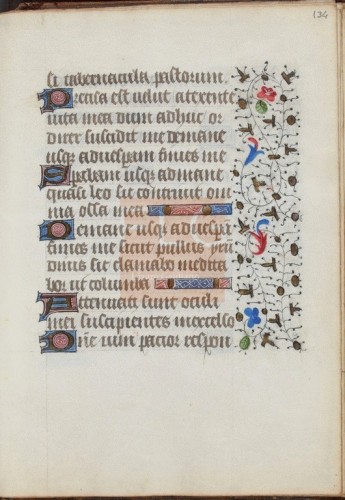 134
si tabernacula pastorum.
Precisa est uelut a texente
uita mea dum adhuc or
direr succidit me de mane
usq; ad uesperam finies me
Sperabam usq; ad mane
quasi leo sic contriuit om
nia ossa mea
De mane usq; ad uespera
finies me sicut pullus yrun
dinis sic clamabo medita
bor ut columba
Attenuati sunt oculi
mei suscipientes in excelso
Dne uim pacior respon